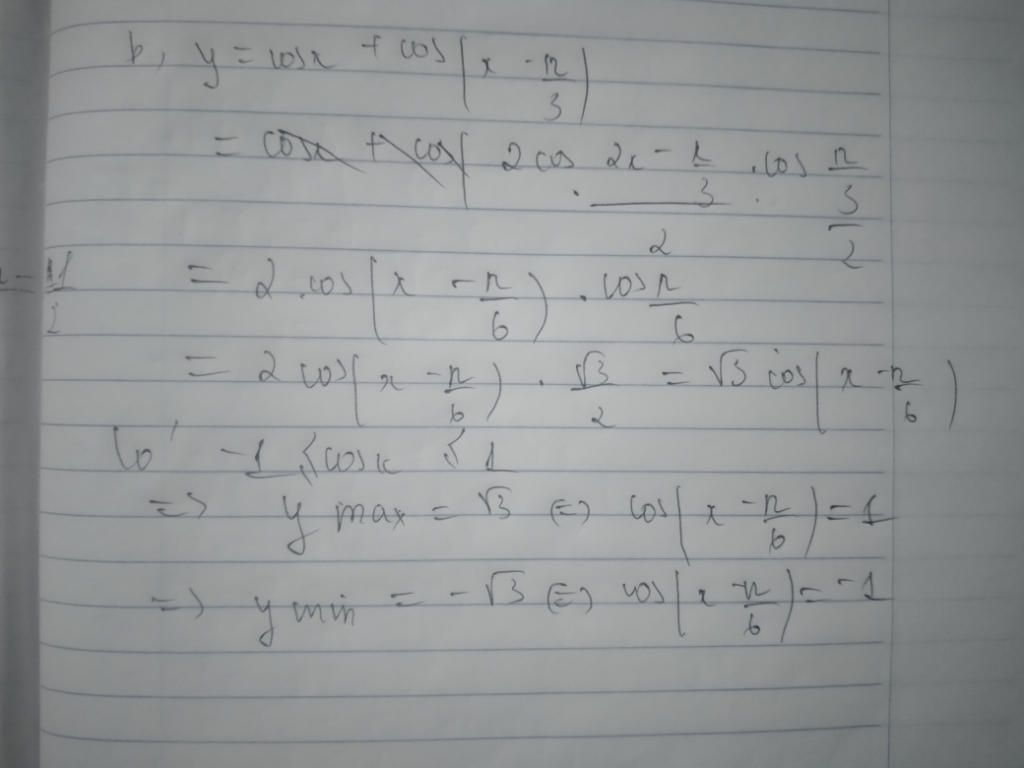 b, y = cosx + cos(x - π/3)
= cosx + cos( 2cos (2x - π/3)/2 . cos (π/3)/2
= 2.cos(x - π/6) . cos π/6
= 2cos(x - π/6) . √3/2 = √3 cos(x - π/6)
Có -1 ≤ cosx ≤ 1
=> y max = √3 <=> cos(x - π/6) = 1
=> y min = -√3 <=> cos(x - π/6) = -1